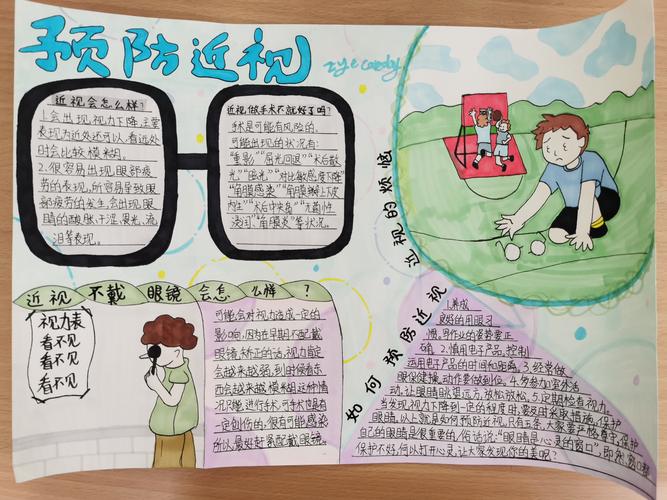 预防近视
近视会怎么样?
1.会出现,视力下降,主要
表现为近处还可以,看远处
时会比较模糊。
2.很容易出现眼部疲
劳的表现,所容易导致眼
部疲劳的发生,会出现眼
睛的酸胀、干涩、畏光、流
泪等表现。
近视,做手术不就好了吗?
手术是可能有风险的。
可能出现的状况有:
"重影""屈光回退""术后散
光""眩光""对比敏感度下降"
"角膜感染""角膜瓣上皮
内生""术后中央岛"
浸润""角膜炎"等状况。
近视的烦恼
近视不戴眼镜会怎么样?
视力表
看不见
看不见
看不见
可能会对视力造成一定的
影响,因为在早期不配戴
眼镜矫正的话,视力肯定
会越来越弱,到时候看东
西会越来越模糊,这种情
况只能进行手术,可手术也是有
一定创伤的,很有可能感染
所以,最好赶紧配戴眼镜。
如何预防近视
1.养成
良好的用眼习
惯,写作业的姿势要正
确 2.慎用电子产品,控制
运用电子产品的时间和距离,3.经常做
眼保健操,动作要做到位。4.多参加室外活
动,让眼睛眺望远方,放松放松。5.定期检查视力。
当发现,视力下降到一定的程度时,要及时采取措施,保护
眼睛,以上就是如何预防近视,只有五条,大家要严格遵守,保护
自己的眼睛是很重要的,俗话说:"眼睛是心灵的窗口",即然窗口都
保护不好,何以打开心灵,让大家发现你的美呢?